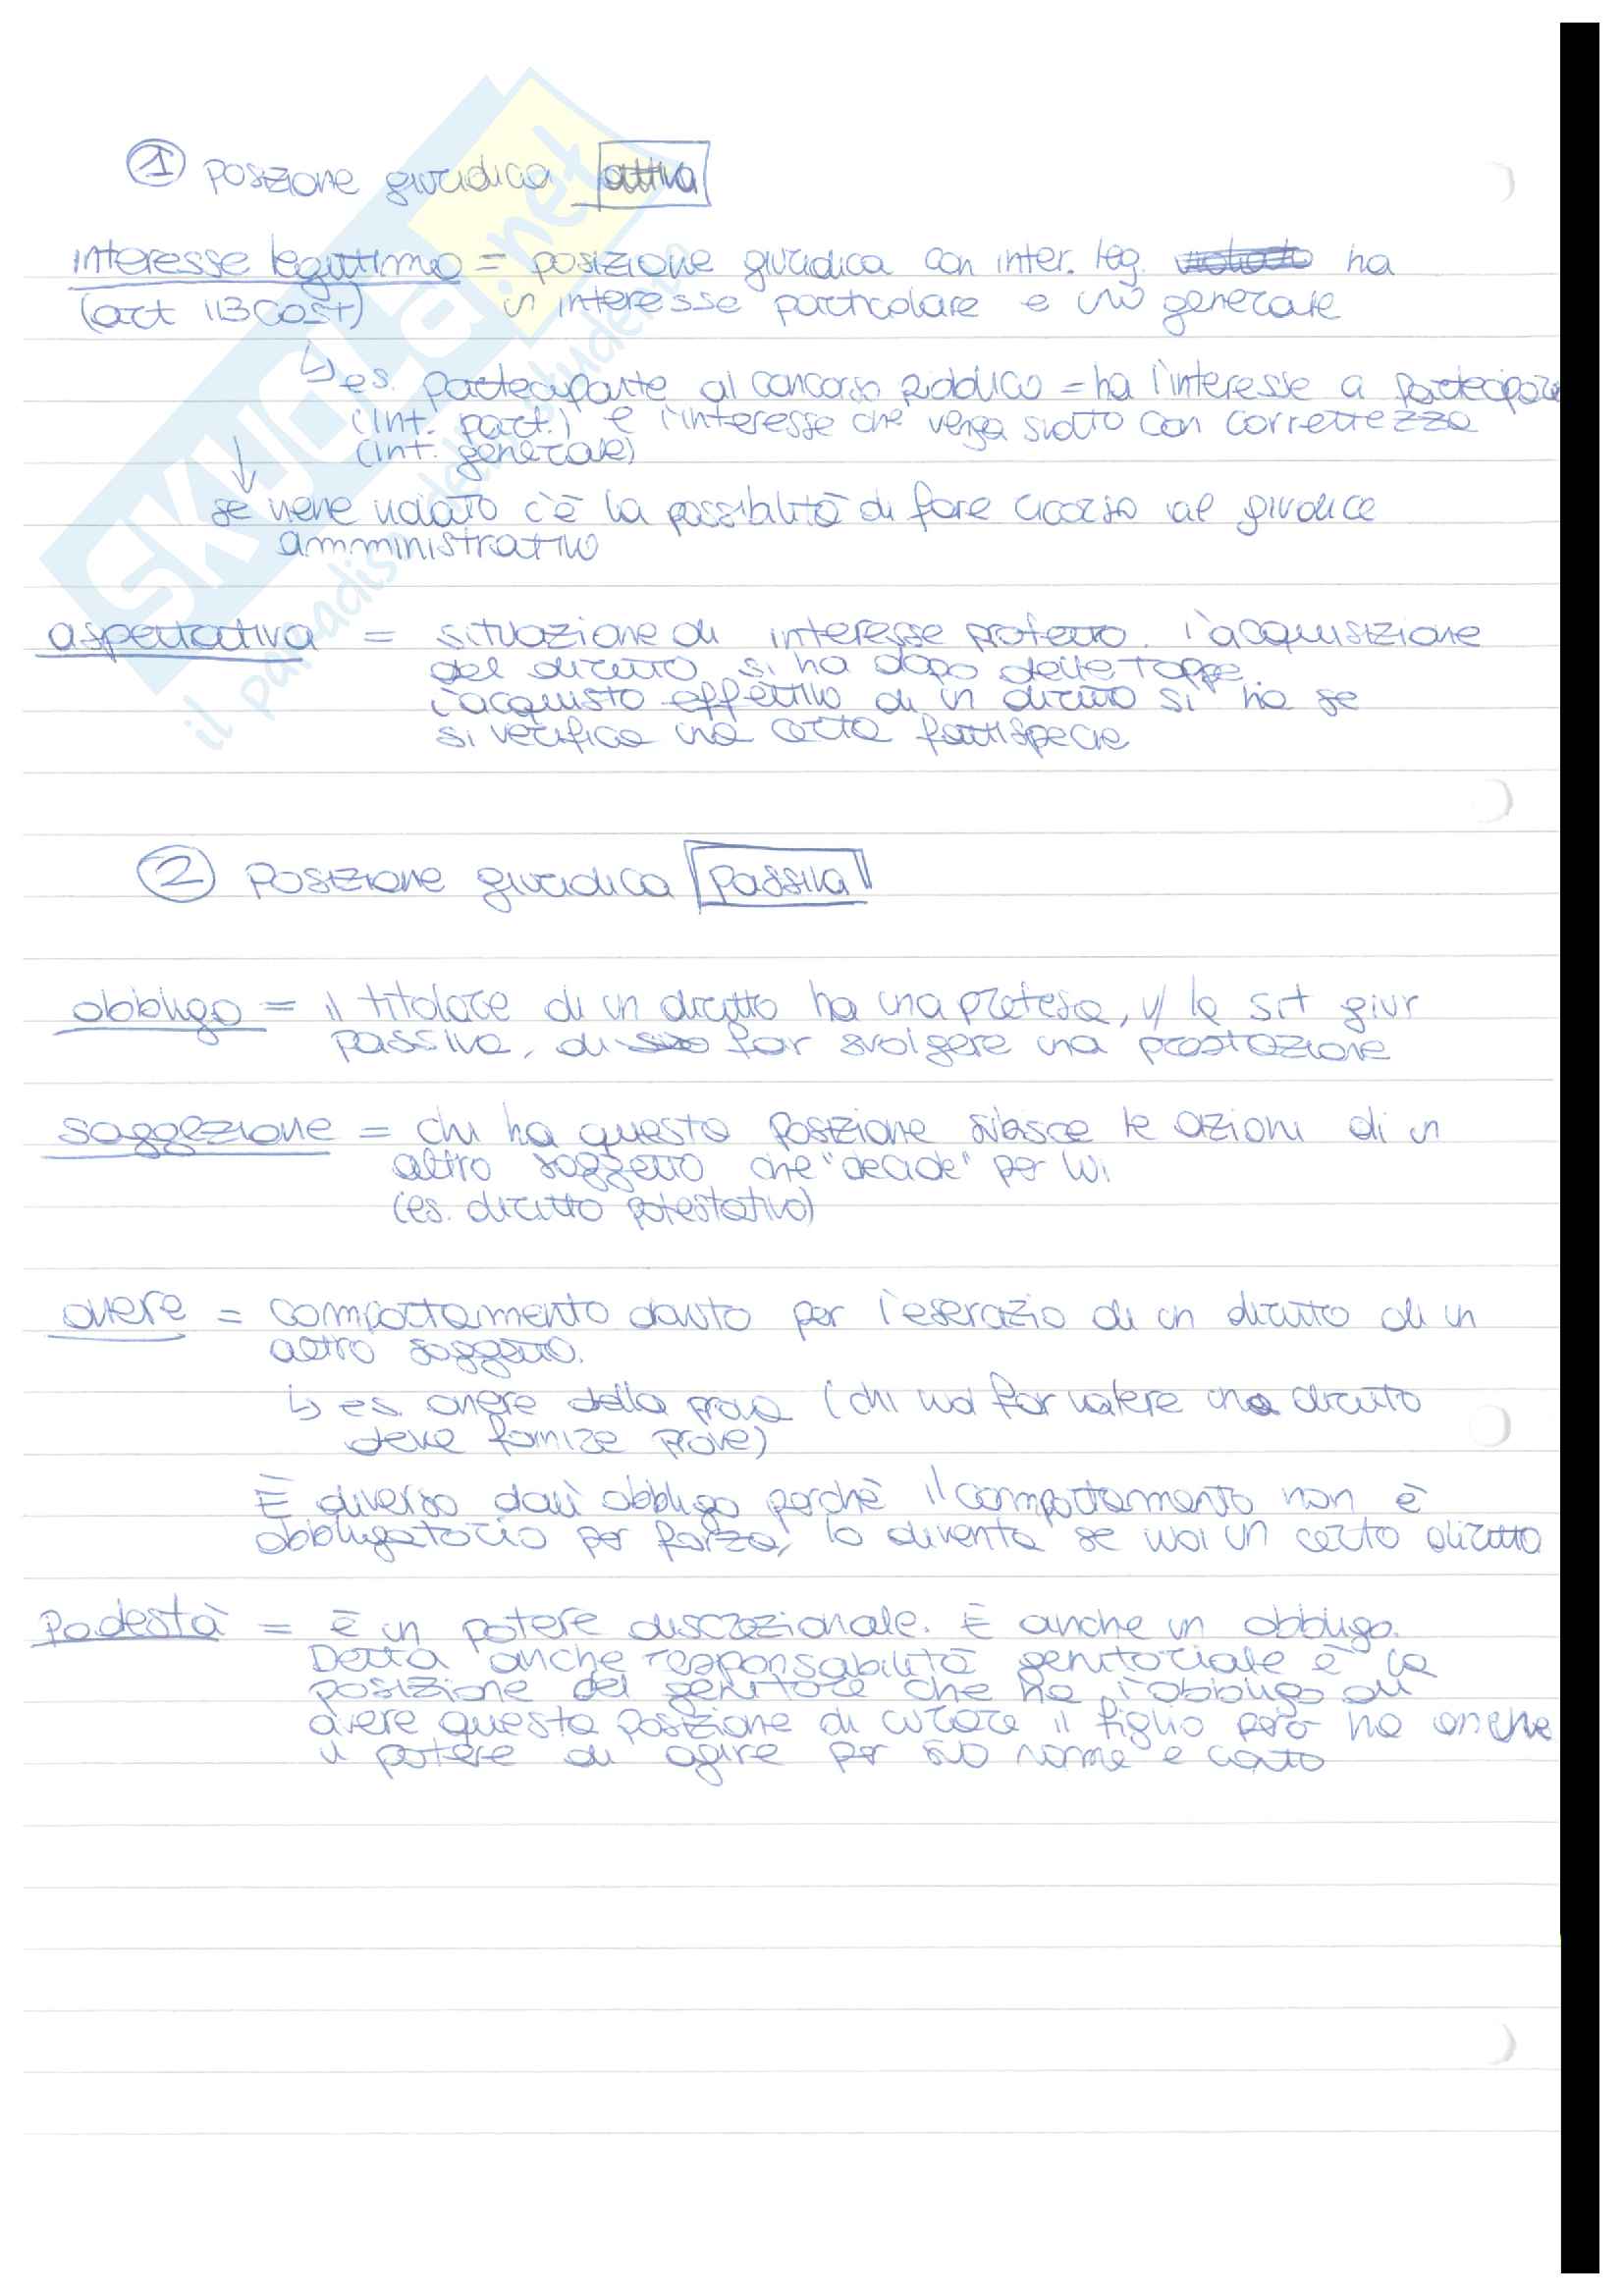 ① posizione giuridica attiva
interesse legittimo = posizione giuridica con inter. leg. ha
(art 113 Cost) un interesse particolare e uno generale
↳ es. partecipante al concorso pubblico = ha l'interesse a partecipare
(int. part.) e l'interesse che venga svolto con correttezza
(int. generale)
↓
se viene violato c'è la possibilità di fare ricorso al giudice
amministrativo
aspettativa = situazione di interesse protetto. l'acquisizione
del diritto si ha dopo delle tappe.
l'acquisto effettivo di un diritto si ha se
si verifica una certa fattispecie
② Posizione giuridica passiva
obbligo = il titolare di un diritto ha una pretesa, v/ la sit giur
passiva, di far svolgere una prestazione
soggezione = chi ha questa posizione subisce le azioni di un
altro soggetto che "decide" per lui
(es. diritto potestativo)
onere = comportamento dovuto per l'esercizio di un diritto di un
altro soggetto.
↳ es. onere della prova (chi vuol far valere una diritto
deve fornire prove)
È diverso dall'obbligo perchè il comportamento non è
obbligatorio per forza, lo diventa se vuoi un certo diritto
Podestà = è un potere discrezionale. È anche un obbligo.
Detta anche responsabilità genitoriale è la
posizione del genitore che ha l'obbligo di
avere questa posizione di curare il figlio però ha anche
il potere di agire per suo nome e conto
SKUOLA.net
il paradiso dello studente